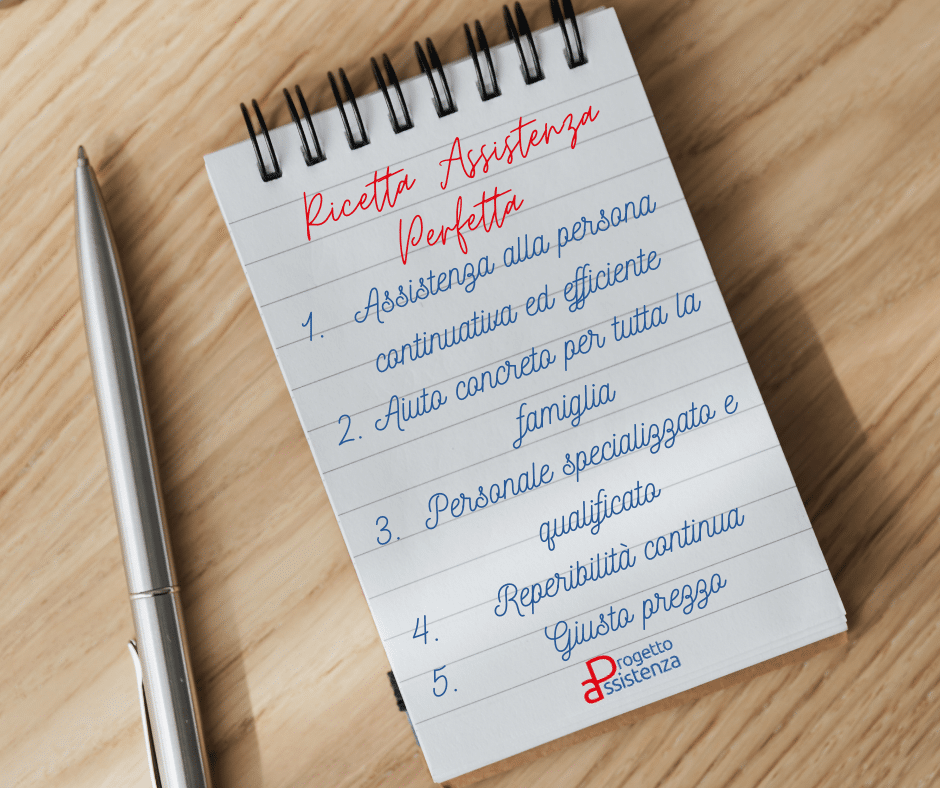 Ricetta Assistenza
Perfetta
1. Assistenza alla persona
continuativa ed efficiente
2. Aiuto concreto per tutta la
famiglia
3. Personale specializzato e
qualificato
4. Reperibilità continua
5. Giusto prezzo
Progetto
assistenza